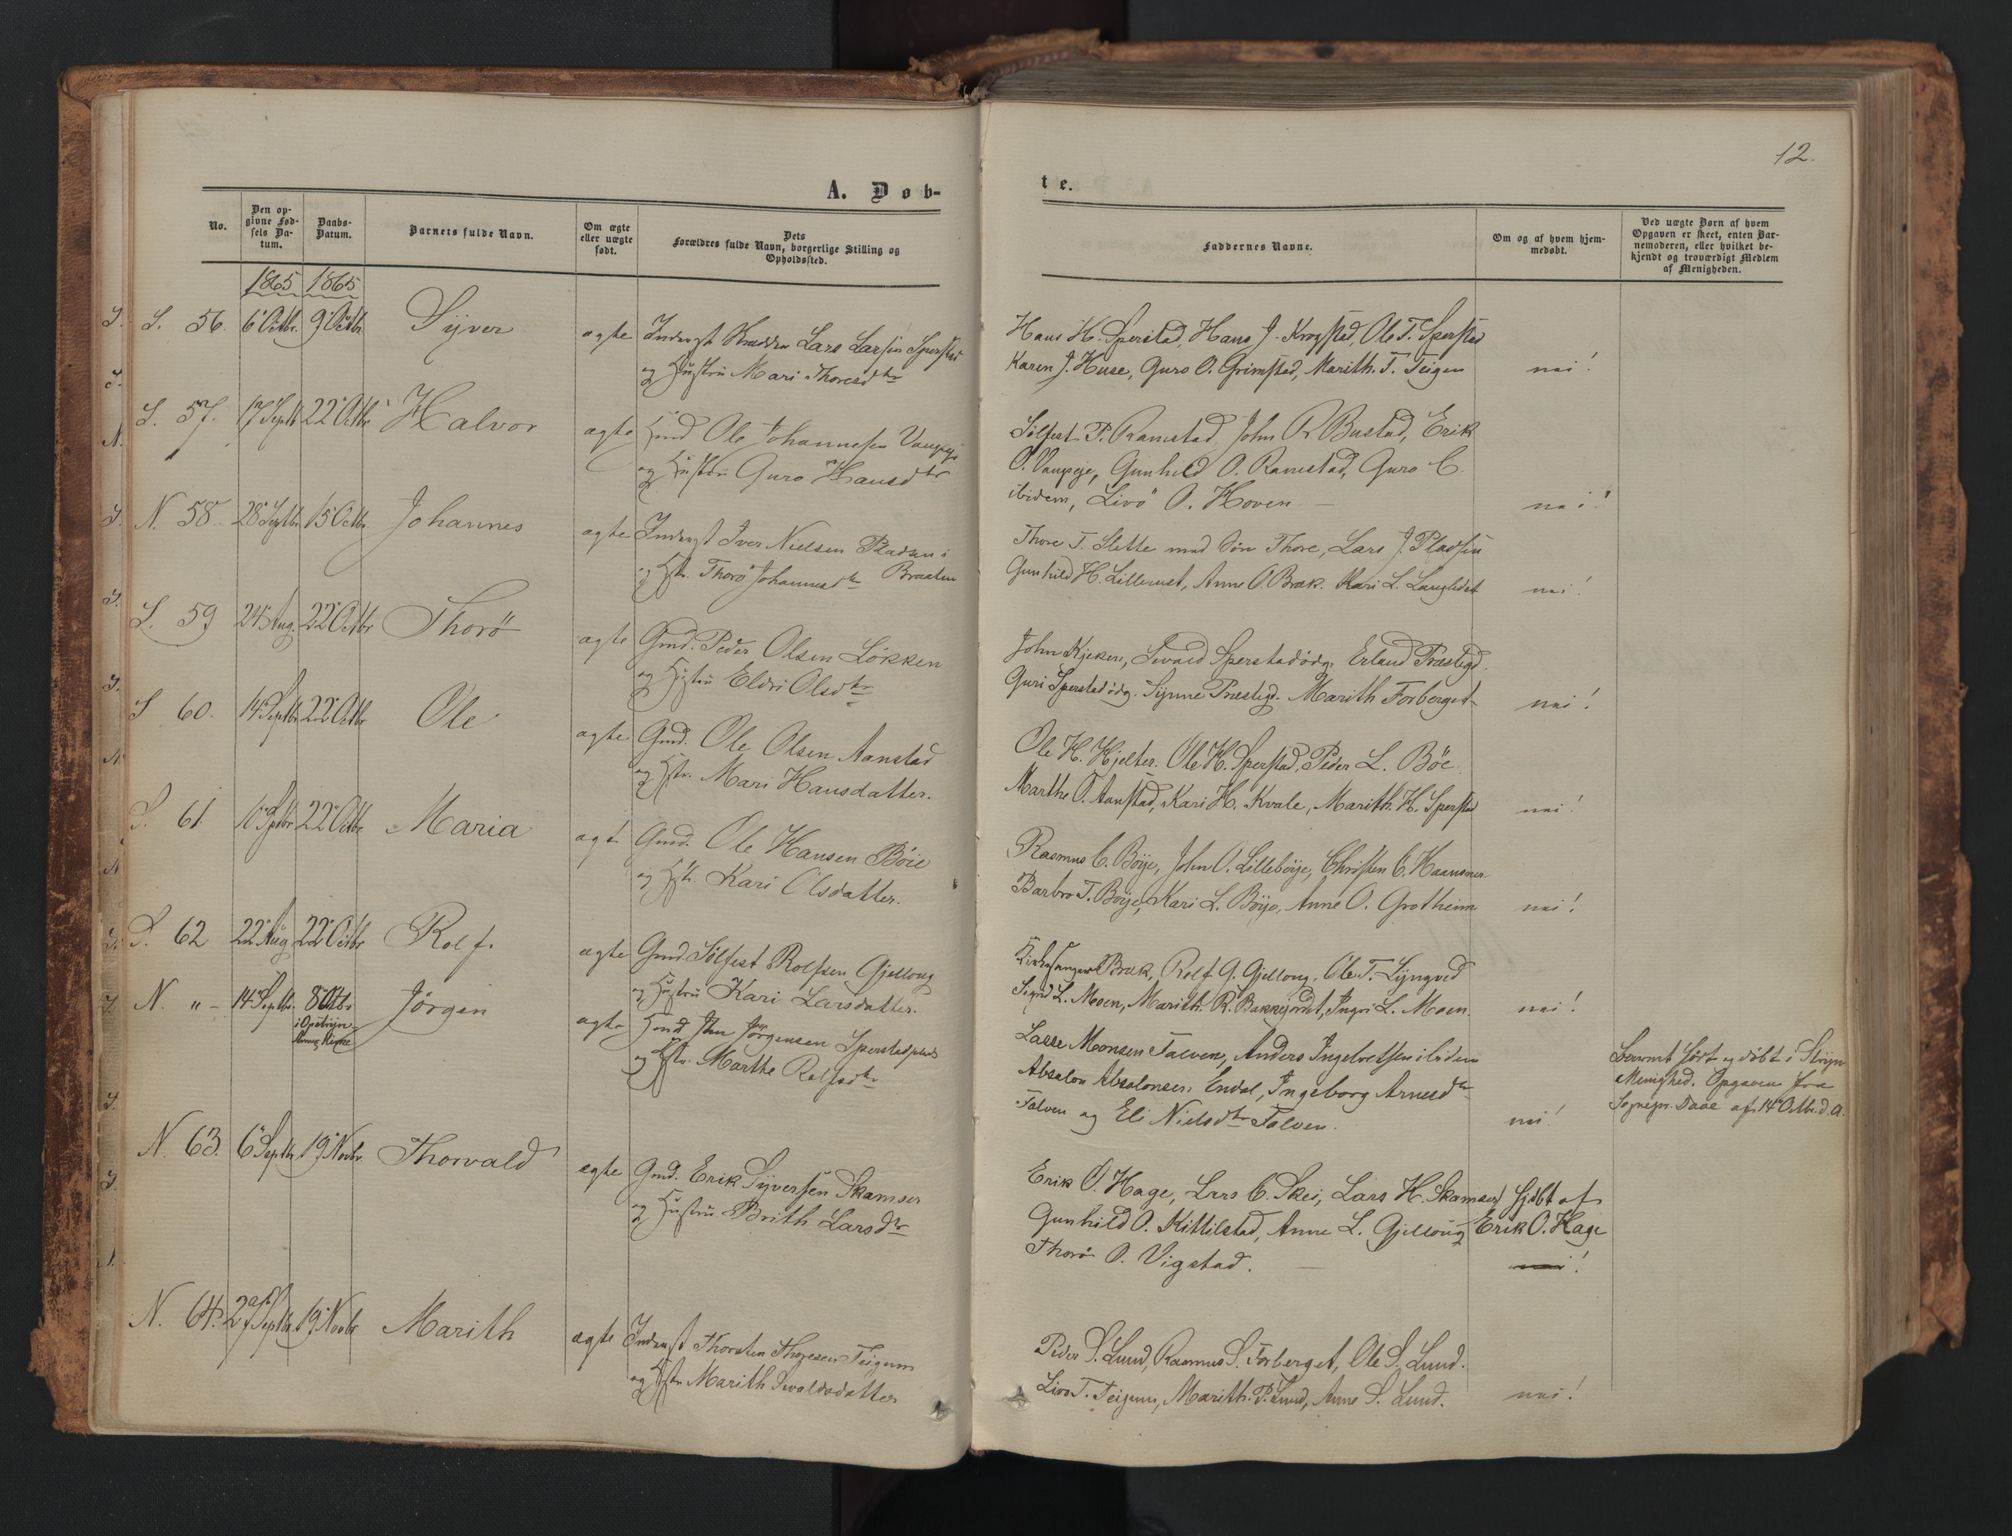 12.
A. Døb-
te.
No.
Den op-
givne Fød-
sels Da-
tum.
Daabs-
Datum.
Barnets fulde Navn.
Om ægte
eller uægte
født.
Dets
Forældres fulde Navn, borgerlige Stilling og
Opholdssted.
Faddernes Navne.
Om og af hvem hjem-
medøbt.
Ved uægte Børn af hvem
Opgaven er skeet, enten Bar-
nemoderen, eller hvilket be-
kjendt og troværdigt Medlem
af Menigheden.
1865 1865
S. 56. 6 Octbr. 9 Octbr Syver ægte Inderst Lars Larsen Sperstad
og Hustru Mari Thoresdtr
Hans H. Sperstad, Hans J. Krogstad, Ole T. Sperstad
Karen J. Huse, Guro O. Grimstad, Marith T. Teigen nei!
S. 57. 17 Septb 22 Octbr Halvor ægte Gmd Ole Johannesen Vangeje
og Hustru Guro Hansdtr
Sølfest P. Ramstad, John R Bustad, Erik
O. Vangeje, Gunhild O. Ramstad, Guro C.
ibidem, Livö O. Hoven — nei!
N. 58. 28 Septbr 15 Octbr Johannes ægte Inderst Iver Nielsen Pladsen i
og Hstr. Thorö Johannesdtr Braaten
Thore T. Slette med Søn Thore, Lars J. Pladsen
Gunhild H. Lillerust, Anne O. Bræk. Kari L. Langlidet nei!
S. 59 24 Aug. 22 Octbr Thorö ægte Gmd. Peder Olsen Løkken
og Hustru Eldri Olsdtr
John Kjeken, Sivald Sperstadødg. Erland Præstegd.
Guri Sperstadødg. Synne Præstegd. Marith Forberget nei!
S 60. 14 Septbr 22 Octbr Ole ægte Gmd. Ole Olsen Aanstad
og Hstr. Mari Hansdatter.
Ole H. Hjelter. Ole H. Sperstad, Peder L. Böe.
Marthe O. Aanstad, Kari H. Kvale, Marith H. Sperstad nei!
S. 61. 10 Septbr 22 Octbr Maria ægt Gmd. Ole Hansen Böie
og Hstr. Kari Olsdatter.
Rasmus C. Böje, John O. Lilleböje, Christen C. Haansnar
Barbro T. Böje, Kari L. Böje, Anne O. Grotheim nei!
S. 62 22 Aug 22 Octbr Rolf. ægte Gmd. Sölfest Rolfsen Gjellong
og Hustru Kari Larsdatter.
Kirkesanger Bræk, Rolf G. Gjellong, Ole T. Lyngved
Sigrid L. Moen, Marith R. Bakkegrdet, Ingri L. Moen. nei!
N. „ – 14 Septbr. 8 Octbr Jörgen
i Opstryn
Kirke
ægte Gmd Iver Jörgensen Sperstadplads
og Hstr. Marthe Rolfsdtr
Lasse Monsen Talven, Anders Ingelvetsen ibidem
Absalon Absalonsen Endal, Ingeborg Arnesdtr
Talven og Eli Nielsdtr Talven. nei!
Barnet født og döbt i Stryn
Menighed. Opgaven fra
Sognepr. Daae af 14 Octbr. d. A.
N. 63. 6 Septbr 19 Novbr. Thorvald ægte Gmd. Erik Syversen Skamser
og Hustru Brith Larsdtr
Erik O. Hage, Lars C. Skei, Lars H. Skamser hjdbt af
Gunhild O. Kittilstad, Anne L. Gjellong Erik O. Hage
Thorö O. Vigstad. — nei!
N. 64. 27 Septbr. 19 Novbr Marith ægte Inderst Thorsten Thoresen Teigum
og Hstr. Marith Sivaldsdatter
Peder S. Lund, Rasmus S. Forberget, Ole S. Lund.
Livö T. Teigum, Marith P. Lund, Anne S. Lund. nei!